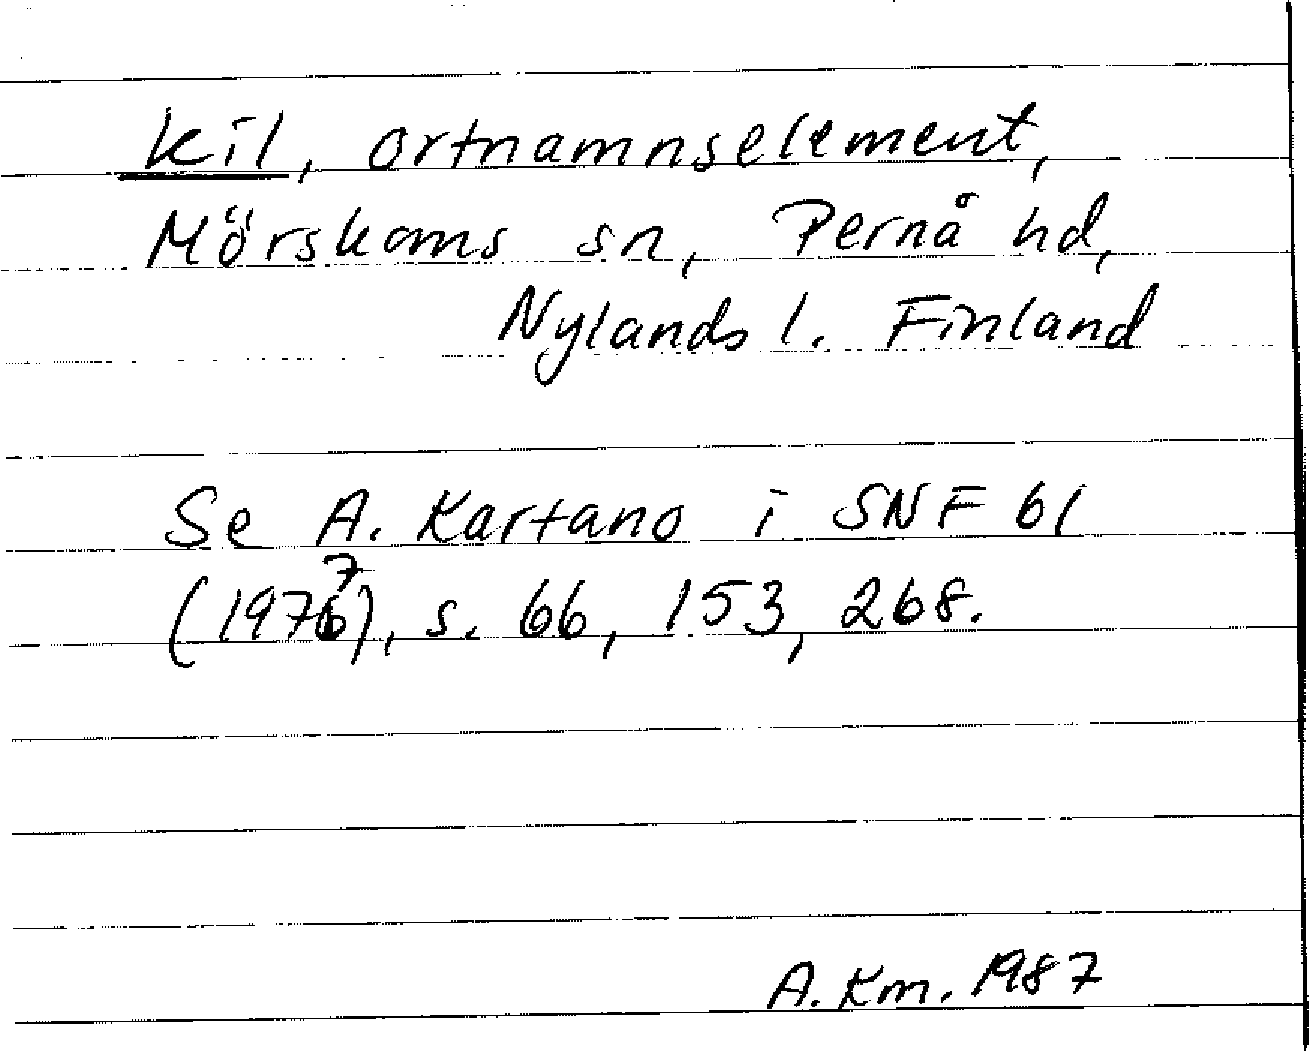 kil, ortnamnselement,
Mörskoms sn, Pernå hd,
Nylands l. Finland
Se A. Kartano i SNF 61
(1977), s. 66, 153, 268.
A. Km. 1987